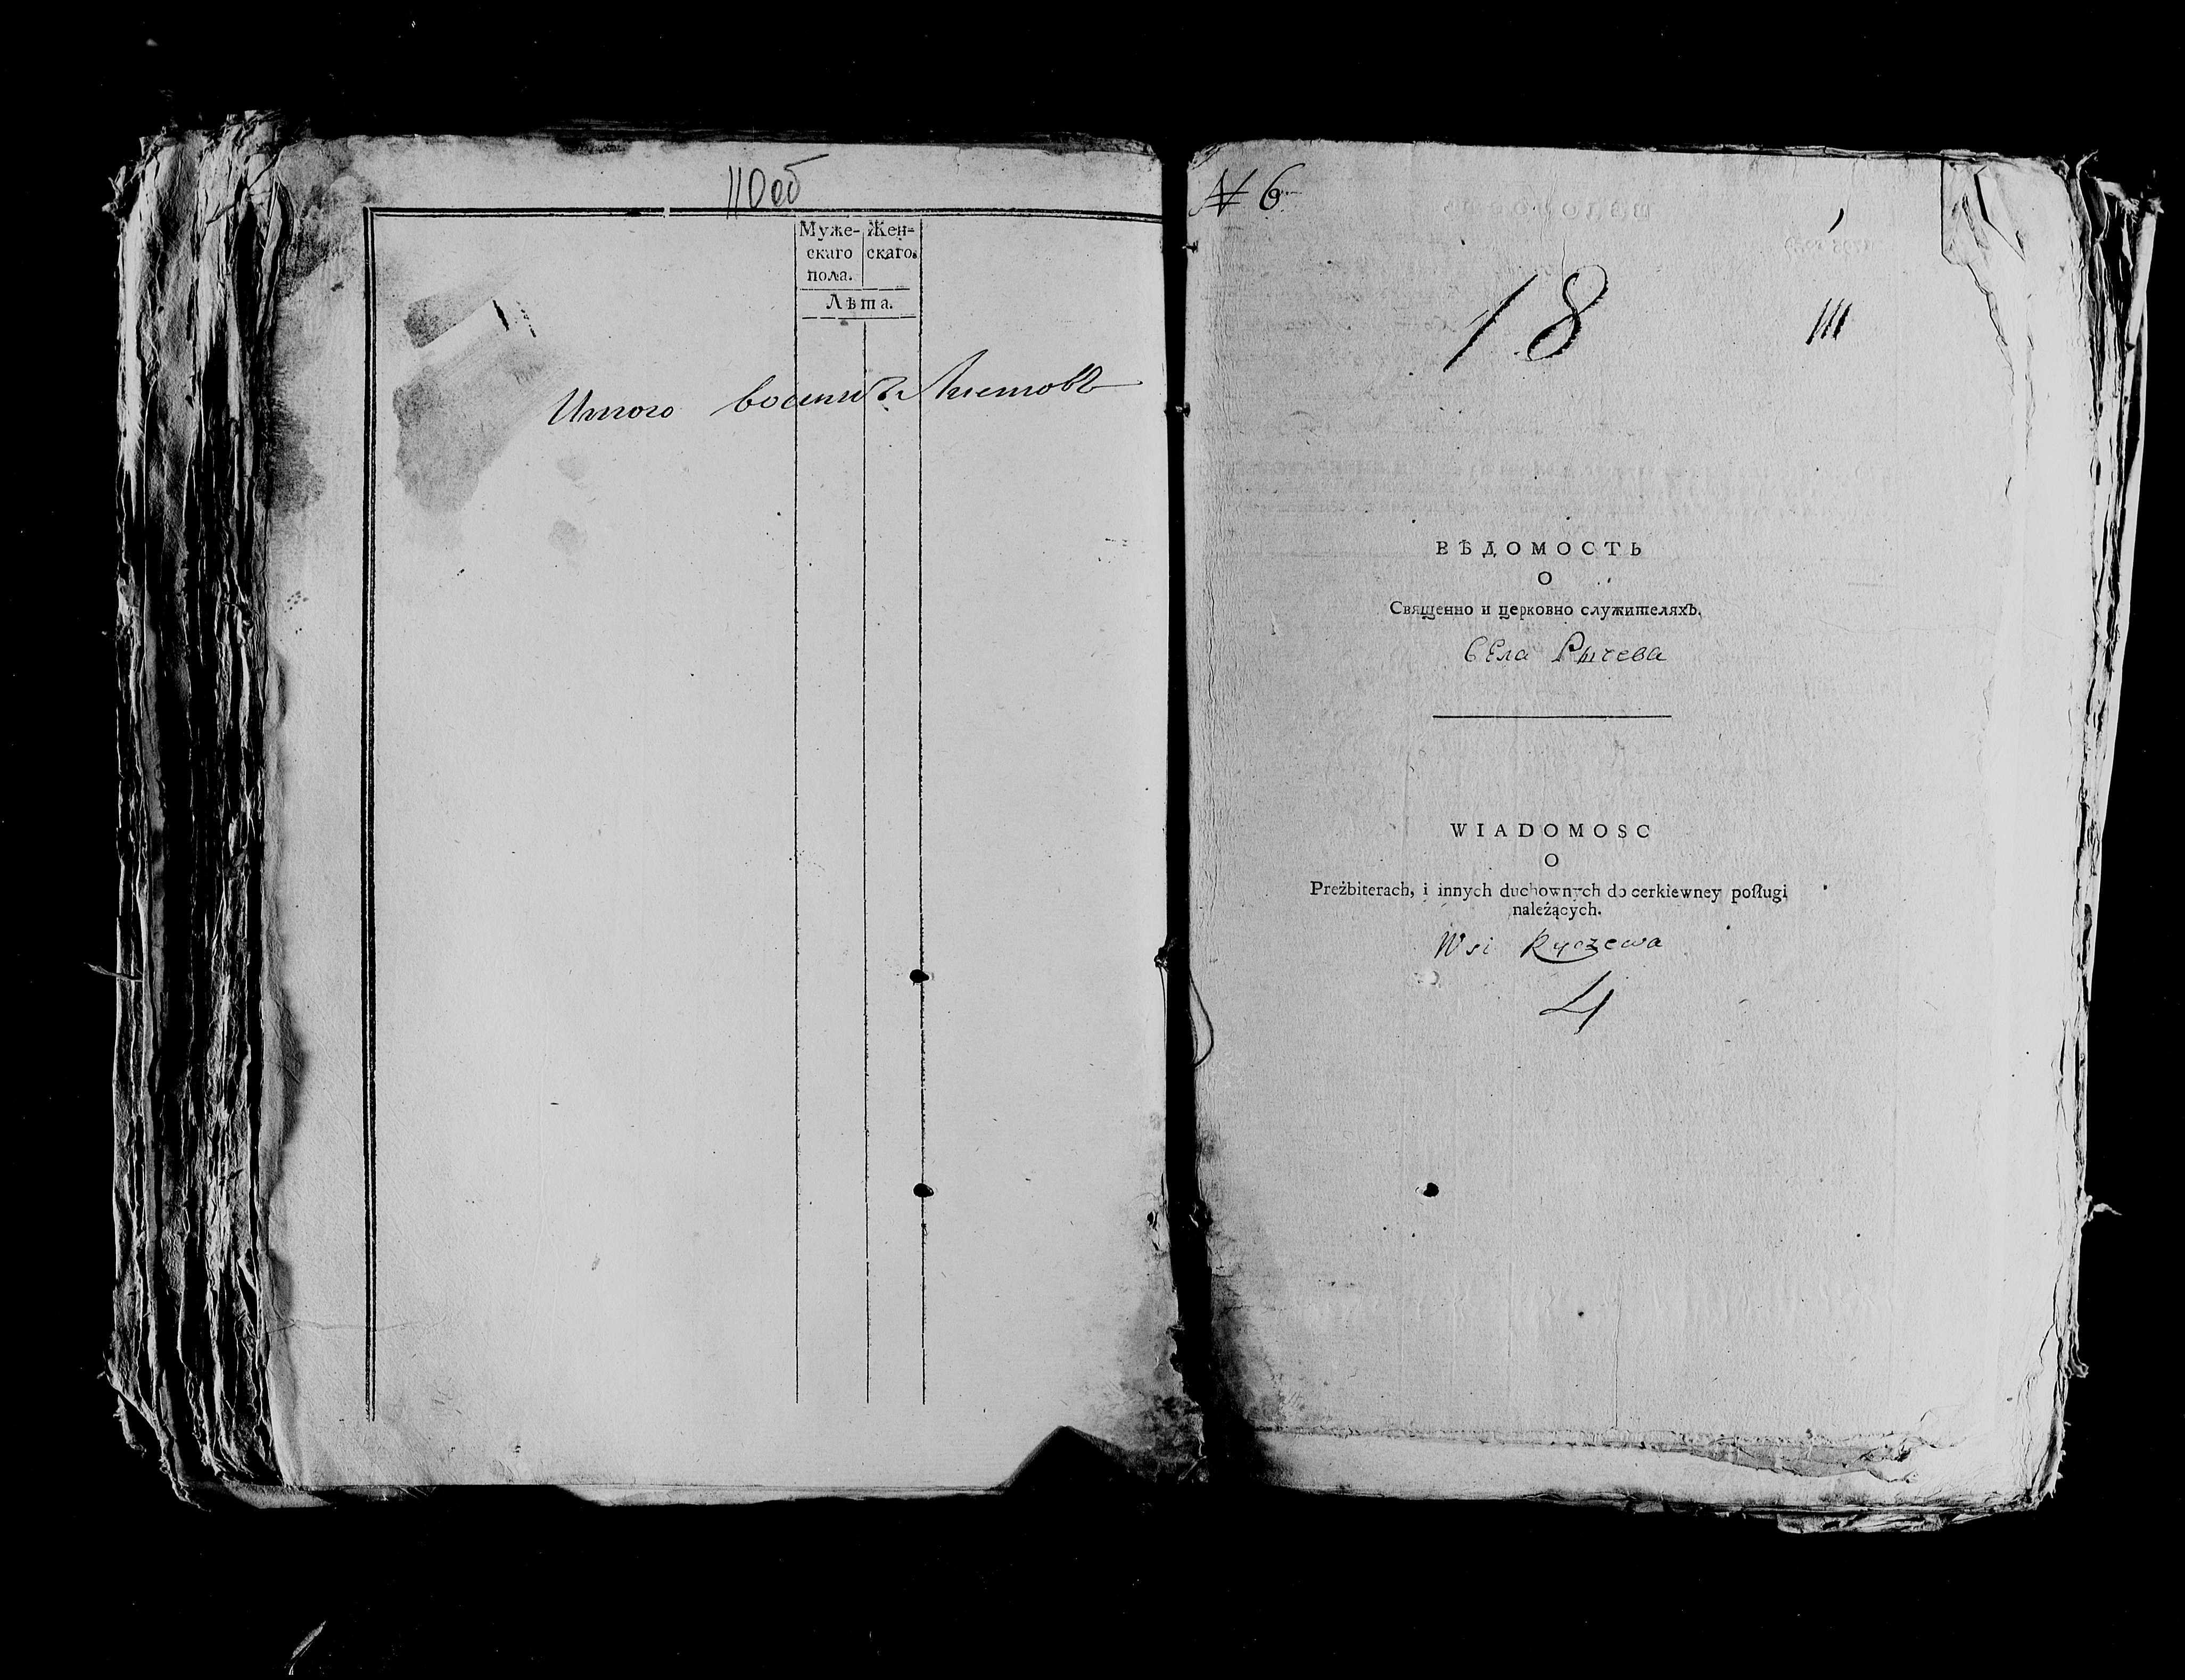 110об
Муже- Жен=
скаго скаго.
пола.
Лѣта.
Итого восемь Листовъ
№ 6
18 111
ВѢДОМОСТЬ
О
Священно и церковно служителяхЪ.
СЕла Рычева
WIADOMOSC
O
Preżbiterach, i innych duchownych do cerkiewney posługi
należących.
Wsi Ryczewa
4